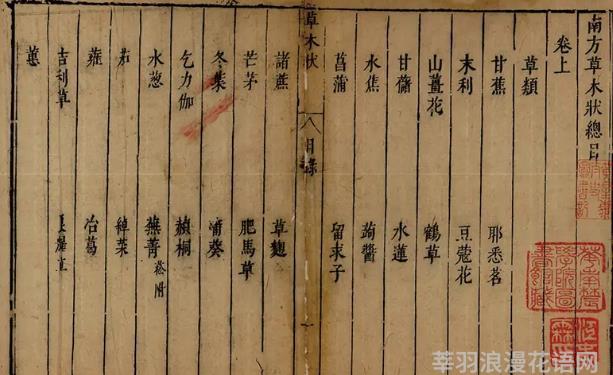 南方草木狀總目
卷上
草類
甘蕉 耶悉茗
末利 豆蔻花
山薑花 鶴草
甘藷 水蓮
水焦 蒟醬
菖蒲 留求子
草木狀 目錄 一
諸蔗 草麴
芒茅 肥馬草
冬葉 蒲葵
乞力伽 赬桐
水葱 蕪菁 菘附
茄 綽菜
蕹 冶葛
吉利草
蕙
莘羽浪漫花语网